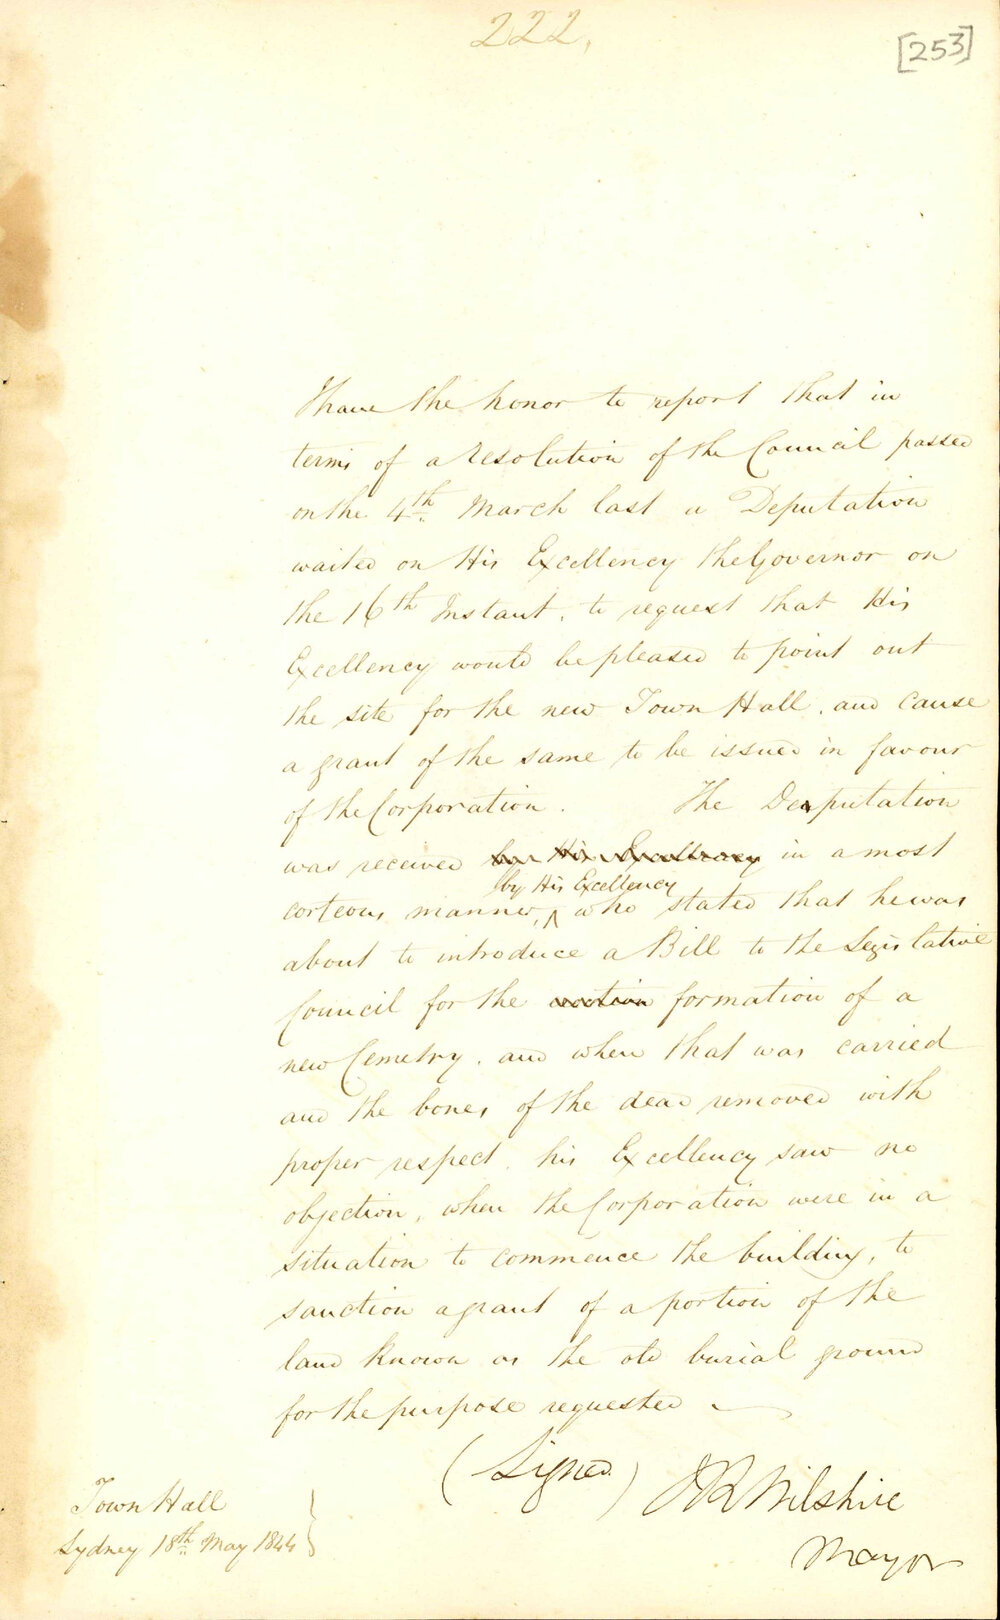 222,
[253]
I have the honor to report that in
terms of a Resolution of the Council passed
on the 4th March last a Deputation
waited on His Excellency the Governor on
the 16th Instant, to request that His
Excellency would be pleased to point out
the site for the new Town Hall, and cause
a grant of the same to be issued in favour
of the Corporation. The Deputation
was received by His Excellency in a most
by His Excellency
corteous manner, who stated that he was
about to introduce a Bill to the Legislative
Council for the formation of a
new Cemetry, and when that was carried
and the bones of the dead removed with
proper respect, his Excellency saw no
objection, when the Corporation were in a
situation to commence the building, to
sanction a grant of a portion of the
land known as the old burial ground
for the purpose requested
(Signed) J R Wilshire
Mayor
Town Hall
Sydney 18th May 1844